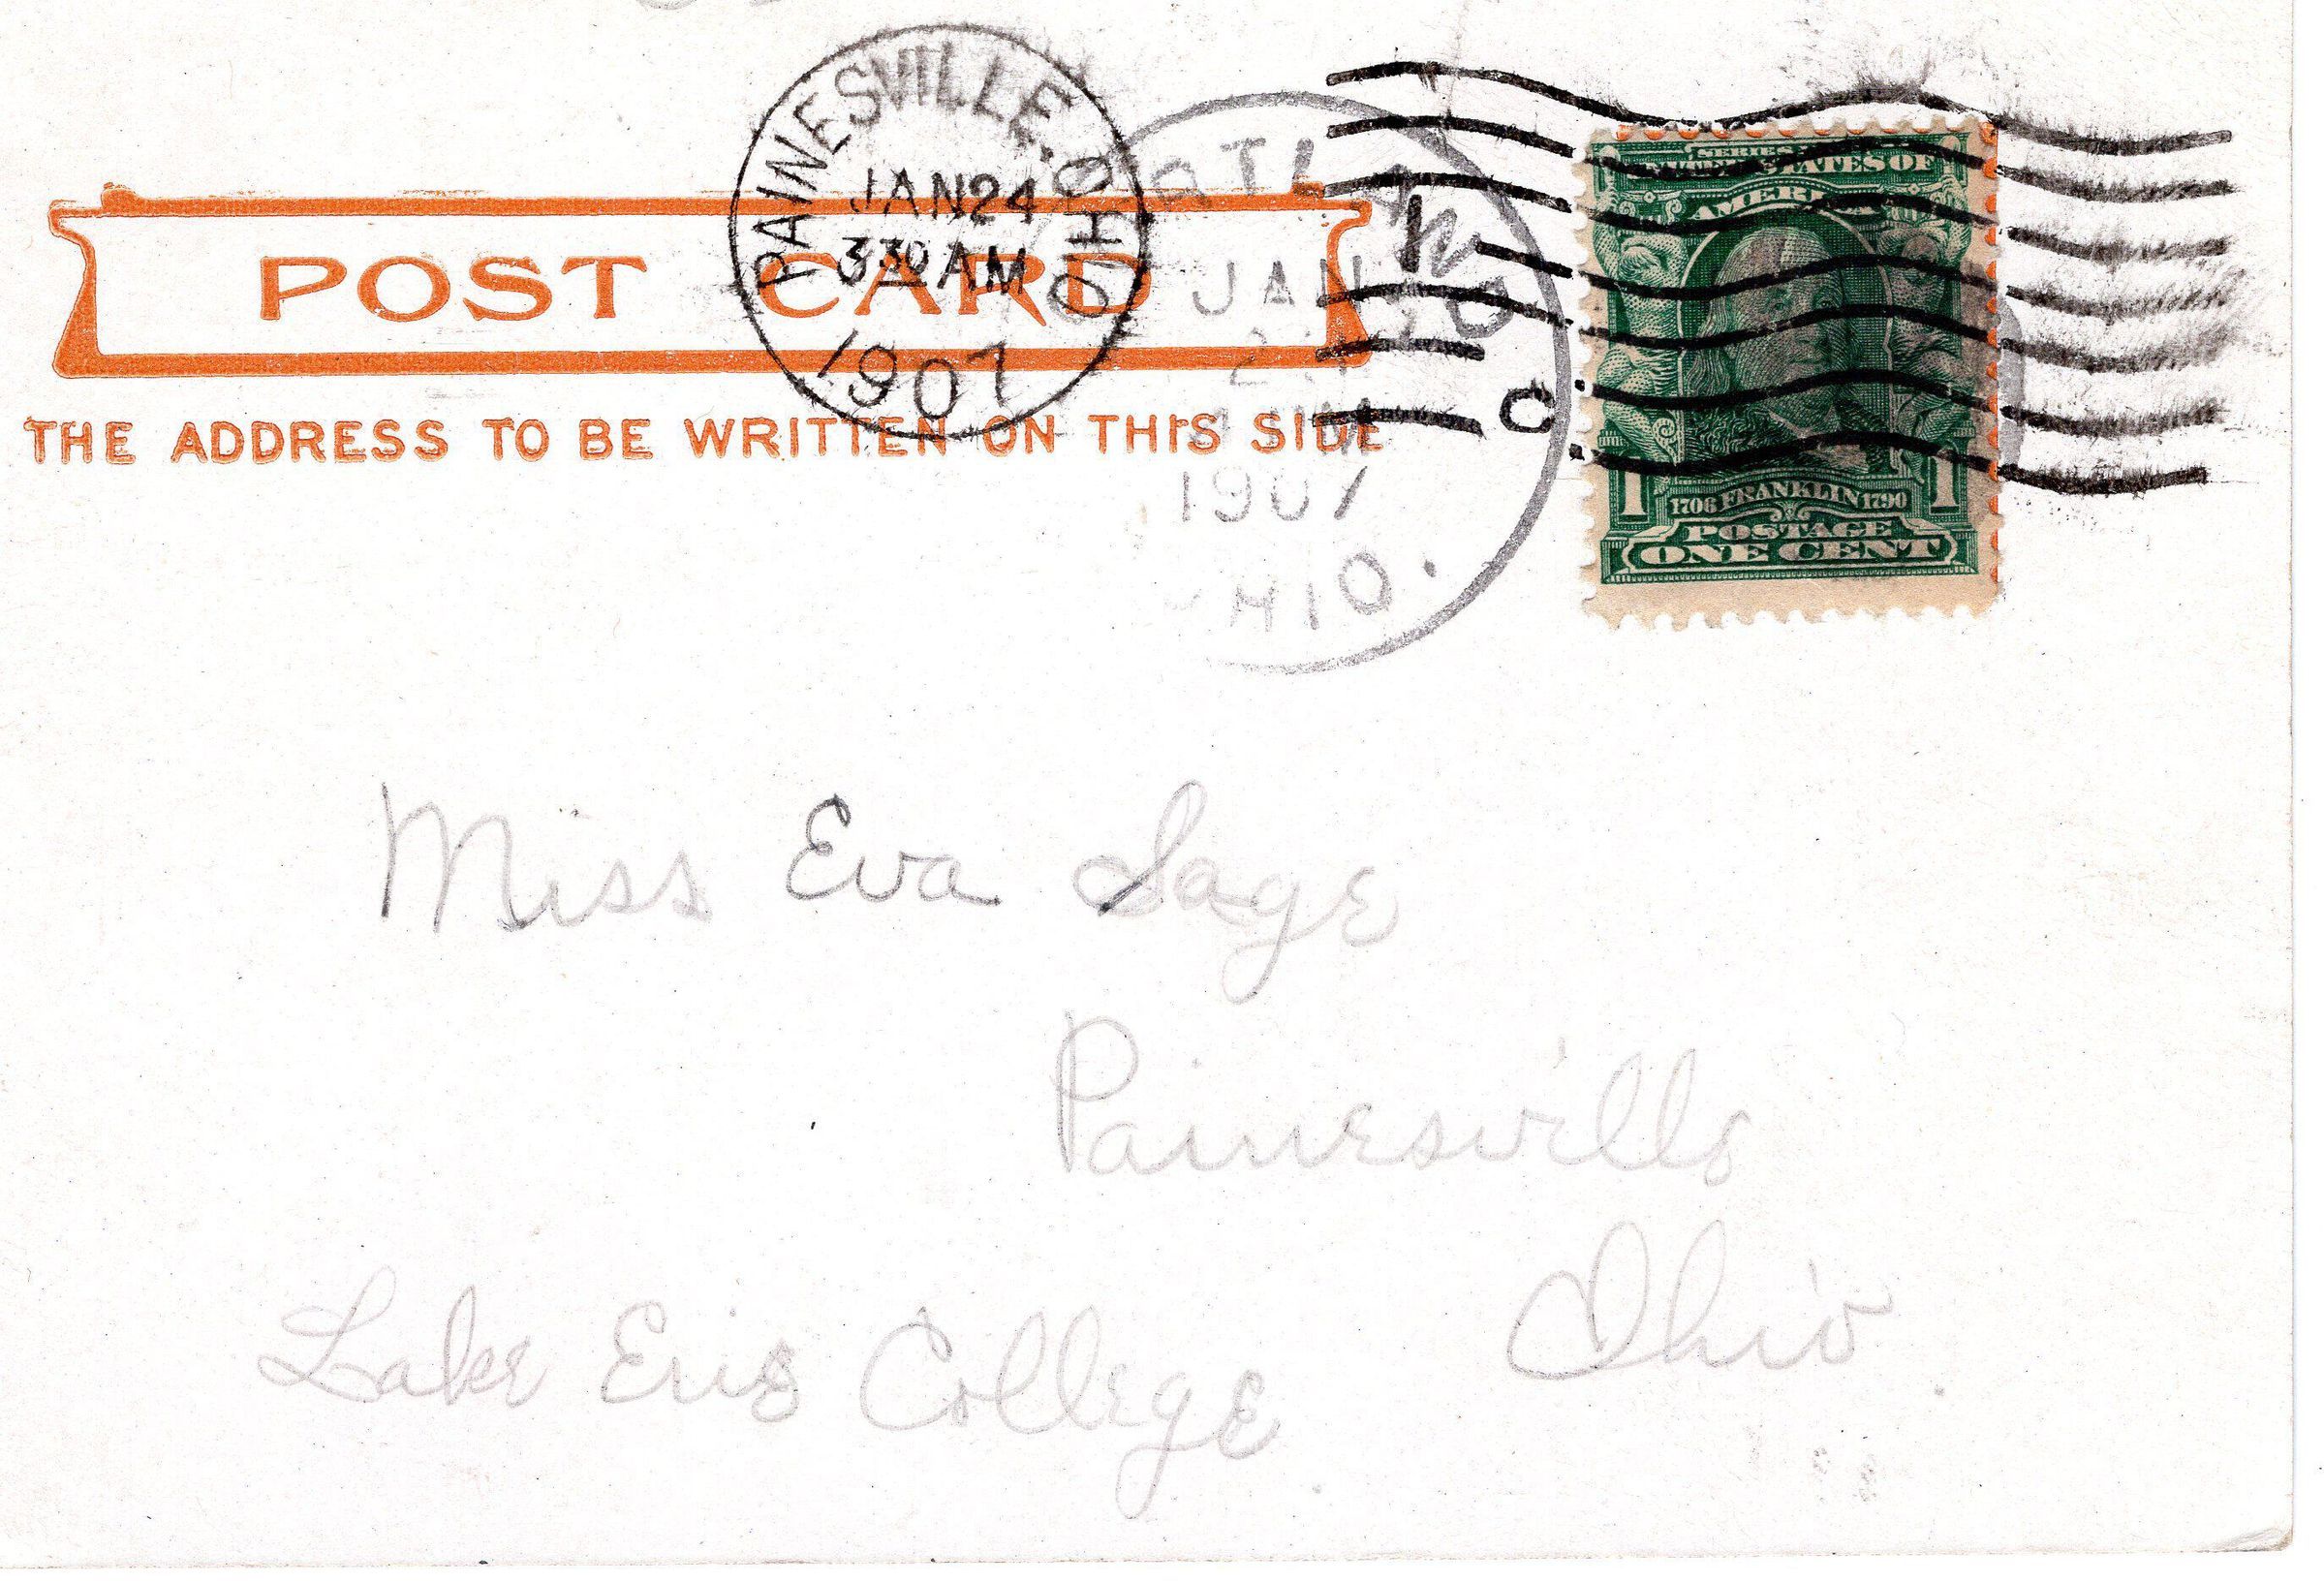 PAINESVILLE. OHIO
JAN 24
3 30 AM
1907
JAN
1907
HIO.
C.
POST CARD
THE ADDRESS TO BE WRITTEN ON THIS SIDE
UNITED STATES OF
AMERICA
1 1706 FRANKLIN 1790 1
POSTAGE
ONE CENT
Miss Eva Sage
Painesville
Ohio.
Lake Erie College.